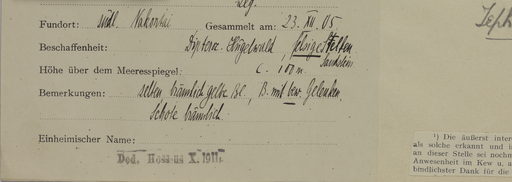 Leg.
Fundort: südl. Nakontai Gesammelt am: 23. XII. 05
Beschaffenheit: Dipteroc. Hügelwald, felsige Stellen
Sandstein
Höhe über dem Meeresspiegel: c. 100 m
Bemerkungen: selten, bräunlich gelbe Bl., B. mit bew. Gelenken.
Schote bräunlich.
Einheimischer Name:
Ded. Hosseus X. 1911.
¹) Die äußerst inter
als solche erkannt und i
an dieser Stelle sei nochm
Anwesenheit im Kew u. a
bindlichster Dank für die